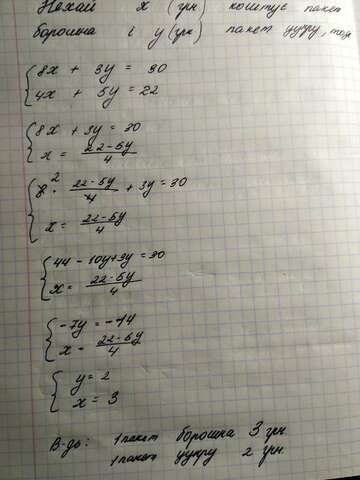 Нехай x (грн) коштує пакет
борошна і y (грн) пакет цукру, тоді
8x + 3y = 30
4x + 5y = 22
8x + 3y = 30
x = 22-5y / 4
8² · 22-5y / 4 + 3y = 30
x = 22-5y / 4
44 - 10y + 3y = 30
x = 22-5y / 4
-7y = -14
x = 22-5y / 4
y = 2
x = 3
В-дь: 1 пакет борошна 3 грн.
1 пакет цукру 2 грн.